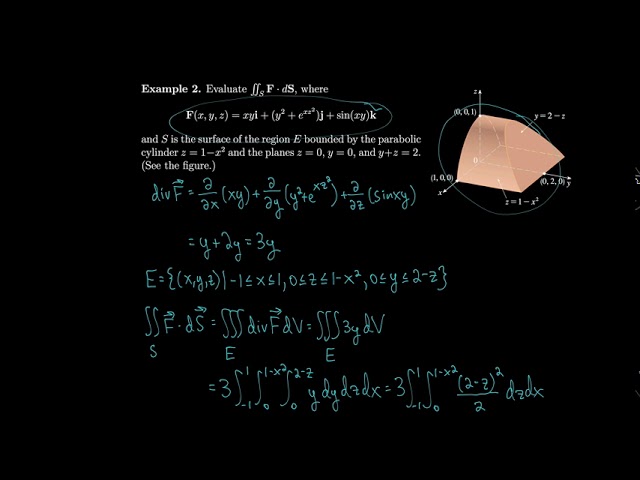 Example 2. Evaluate ∬_S F · dS, where
F(x, y, z) = xyi + (y² + e^{xz²})j + sin(xy)k
and S is the surface of the region E bounded by the parabolic
cylinder z = 1−x² and the planes z = 0, y = 0, and y+z = 2.
(See the figure.)
z
(0, 0, 1)
y = 2 − z
0
(1, 0, 0)
(0, 2, 0) y
x
z = 1 − x²
div F⃗ = ∂/∂x (xy) + ∂/∂y (y² + e^{xz²}) + ∂/∂z (sinxy)
= y + 2y = 3y
E = {(x,y,z) | -1 ≤ x ≤ 1, 0 ≤ z ≤ 1-x², 0 ≤ y ≤ 2-z}
∬_S F⃗ · dS⃗ = ∭_E div F⃗ dV = ∭_E 3y dV
= 3 ∫_{-1}^{1} ∫_0^{1-x²} ∫_0^{2-z} y dy dz dx = 3 ∫_{-1}^{1} ∫_0^{1-x²} (2-z)²/2 dz dx